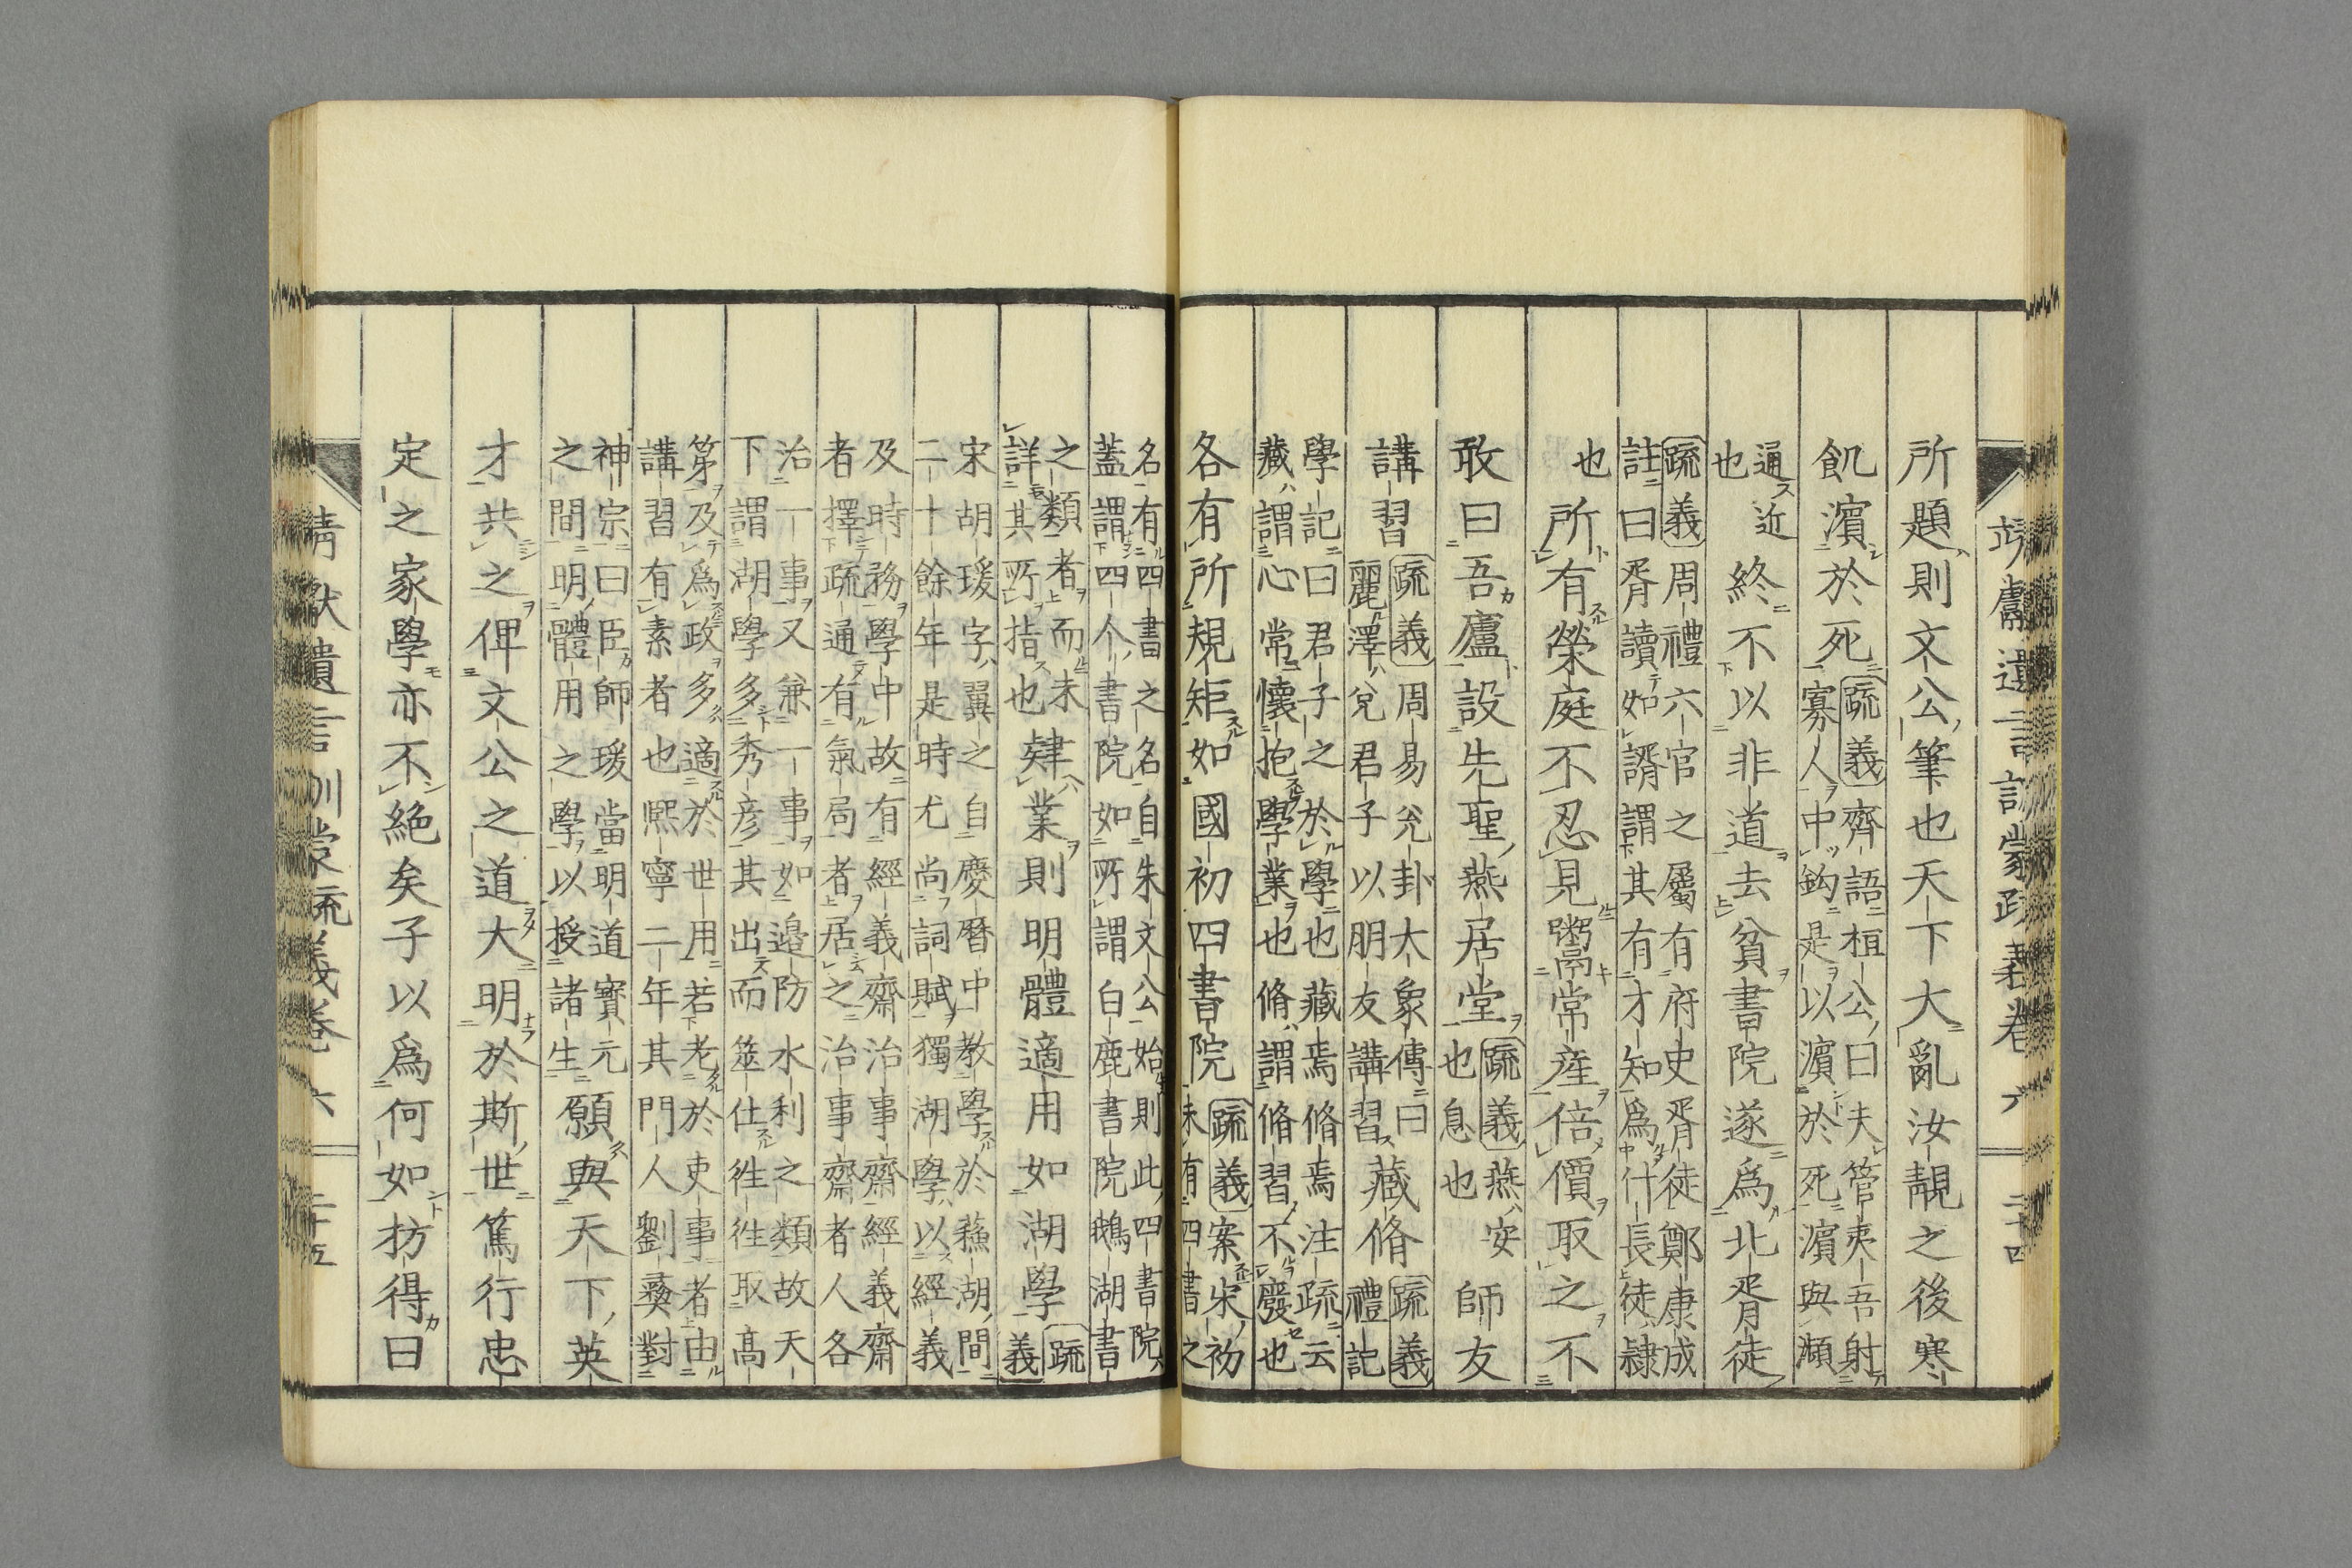 遺言訓蒙疏義卷六 二十四
所題則文公筆也天下大亂汝靚之後寒
飢濵於死
疏義齊語桓公曰夫管夷吾射
寡人中鈎是以濵於死濵與瀕
通近
也
終不以非道去貧書院遂爲北胥徒
疏義周禮六官之屬有府史胥徒鄭康成
註曰胥讀如諝謂其有才知爲什長徒隷
也
所有榮庭不忍見鬻常産倍價取之不
敢曰吾廬設先聖燕居堂
疏義燕安
也息也
師友
講習
疏義周易兊卦大象傳曰
麗澤兊君子以朋友講習
藏脩
疏義
禮記
學記曰君子之於學也藏焉脩焉注疏云
藏謂心常懷抱學業也脩謂脩習不廢也
各有所規矩如國初四書院
疏義案宋初
未有四書之
名有四書之名自朱文公始則此四書院
蓋謂四个書院如所謂白鹿書院鵝湖書
之類者而未
詳其所指也
肄業則明體適用如湖學
疏
義
宋胡瑗字翼之自慶曆中教學於蘇湖間
二十餘年是時尤尚詞賦獨湖學以經義
及時務學中故有經義齋治事齋經義齋
者擇疏通有氣局者居之治事齋者人各
治一事又兼一事如邉防水利之類故天
下謂湖學多秀彦其出而筮仕徃徃取髙
第及爲政多適於世用若老於吏事者由
講習有素者也熈寧二年其門人劉彝對
神宗曰臣師瑗當明道寳元
之間明體用之學以授諸生
願與天下英
才共之俾文公之道大明於斯世篤行忠
定之家學亦不絶矣子以爲何如枋得曰
靖獻遺言訓蒙疏義卷六 二十五